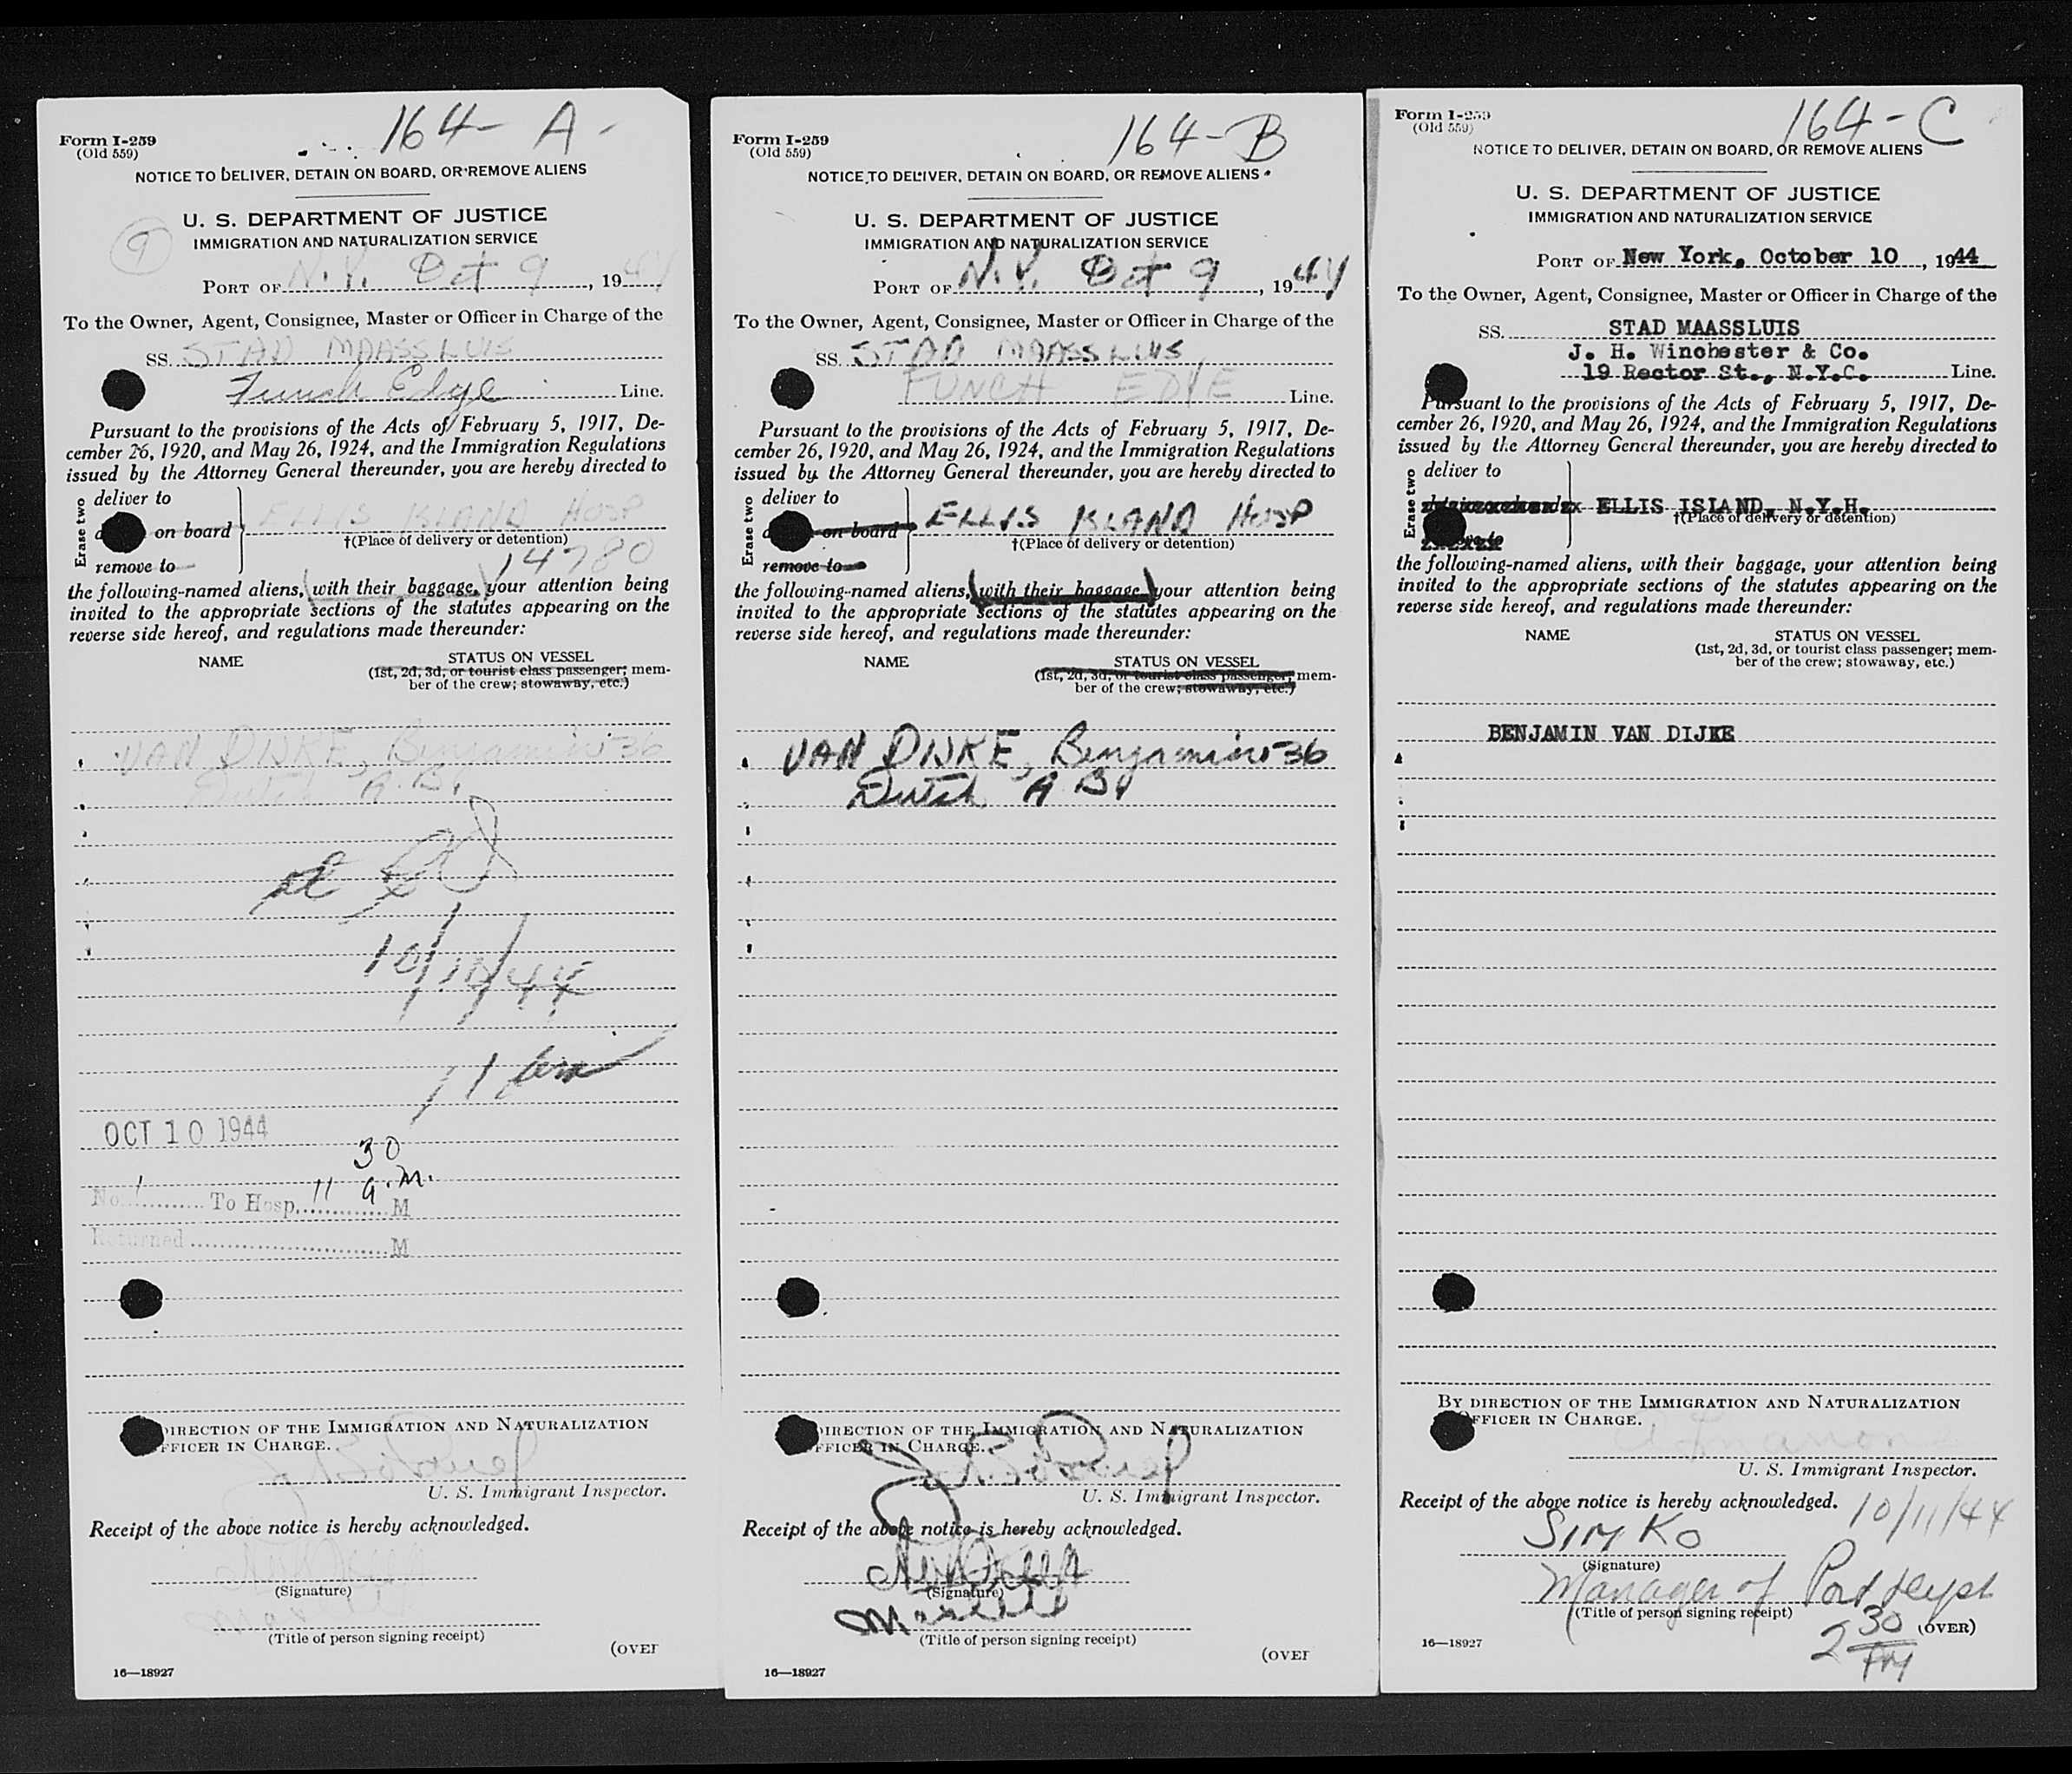 164-A-
Form I-259
(Old 559)
NOTICE TO DELIVER, DETAIN ON BOARD, OR REMOVE ALIENS
U. S. DEPARTMENT OF JUSTICE
IMMIGRATION AND NATURALIZATION SERVICE
9
PORT OF N.Y. Oct 9, 1944
To the Owner, Agent, Consignee, Master or Officer in Charge of the
SS. STAD MAASSLUIS
Funch Edye Line.
Pursuant to the provisions of the Acts of February 5, 1917, De-
cember 26, 1920, and May 26, 1924, and the Immigration Regulations
issued by the Attorney General thereunder, you are hereby directed to
Erase two
deliver to
on board ELLIS ISLAND HOSP
†(Place of delivery or detention)
remove to 14780
the following-named aliens, (with their baggage,) your attention being
invited to the appropriate sections of the statutes appearing on the
reverse side hereof, and regulations made thereunder:
NAME STATUS ON VESSEL
(1st, 2d, 3d, or tourist class passenger; mem-
ber of the crew; stowaway, etc.)
VAN DIJKE, Benjamin 36
Dutch A.B.
10/10/44
11 am
OCT 10 1944
30
No. 1 To Hosp. 11 a.m. M
Returned M
DIRECTION OF THE IMMIGRATION AND NATURALIZATION
OFFICER IN CHARGE.
U. S. Immigrant Inspector.
Receipt of the above notice is hereby acknowledged.
(Signature)
(Title of person signing receipt)
(OVER
16—18927
164-B
Form I-259
(Old 559)
NOTICE TO DELIVER, DETAIN ON BOARD, OR REMOVE ALIENS
U. S. DEPARTMENT OF JUSTICE
IMMIGRATION AND NATURALIZATION SERVICE
PORT OF N.Y. Oct 9, 1944
To the Owner, Agent, Consignee, Master or Officer in Charge of the
SS. STAD MAASSLUIS
FUNCH EDYE Line.
Pursuant to the provisions of the Acts of February 5, 1917, De-
cember 26, 1920, and May 26, 1924, and the Immigration Regulations
issued by the Attorney General thereunder, you are hereby directed to
Erase two
deliver to
on board ELLIS ISLAND HOSP
†(Place of delivery or detention)
remove to
the following-named aliens, (with their baggage,) your attention being
invited to the appropriate sections of the statutes appearing on the
reverse side hereof, and regulations made thereunder:
NAME STATUS ON VESSEL
(1st, 2d, 3d, or tourist class passenger; mem-
ber of the crew; stowaway, etc.)
VAN DIJKE, Benjamin 36
Dutch A B
DIRECTION OF THE IMMIGRATION AND NATURALIZATION
OFFICER IN CHARGE.
U. S. Immigrant Inspector.
Receipt of the above notice is hereby acknowledged.
(Signature)
(Title of person signing receipt)
(OVER
16—18927
164-C
Form I-259
(Old 559)
NOTICE TO DELIVER, DETAIN ON BOARD, OR REMOVE ALIENS
U. S. DEPARTMENT OF JUSTICE
IMMIGRATION AND NATURALIZATION SERVICE
PORT OF New York, October 10, 1944
To the Owner, Agent, Consignee, Master or Officer in Charge of the
SS. STAD MAASSLUIS
J. H. Winchester & Co.
19 Rector St., N.Y.C. Line.
Pursuant to the provisions of the Acts of February 5, 1917, De-
cember 26, 1920, and May 26, 1924, and the Immigration Regulations
issued by the Attorney General thereunder, you are hereby directed to
Erase two
deliver to
ELLIS ISLAND, N.Y.H.
†(Place of delivery or detention)
the following-named aliens, with their baggage, your attention being
invited to the appropriate sections of the statutes appearing on the
reverse side hereof, and regulations made thereunder:
NAME STATUS ON VESSEL
(1st, 2d, 3d, or tourist class passenger; mem-
ber of the crew; stowaway, etc.)
BENJAMIN VAN DIJKE
BY DIRECTION OF THE IMMIGRATION AND NATURALIZATION
OFFICER IN CHARGE.
U. S. Immigrant Inspector.
Receipt of the above notice is hereby acknowledged. 10/11/44
SIMKO
(Signature)
Manager of Port
(Title of person signing receipt)
2 30 PM
(OVER)
16—18927